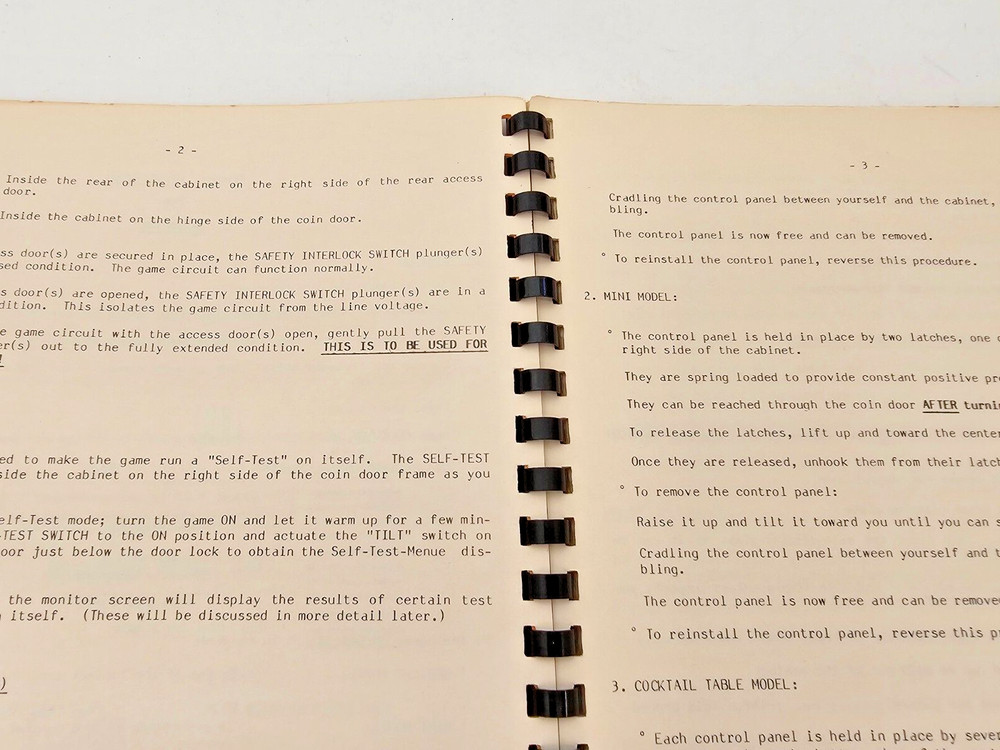 - 2 -
Inside the rear of the cabinet on the right side of the rear access
door.
Inside the cabinet on the hinge side of the coin door.
ss door(s) are secured in place, the SAFETY INTERLOCK SWITCH plunger(s)
sed condition. The game circuit can function normally.
s door(s) are opened, the SAFETY INTERLOCK SWITCH plunger(s) are in a
dition. This isolates the game circuit from the line voltage.
e game circuit with the access door(s) open, gently pull the SAFETY
er(s) out to the fully extended condition. THIS IS TO BE USED FOR
ed to make the game run a "Self-Test" on itself. The SELF-TEST
side the cabinet on the right side of the coin door frame as you
elf-Test mode; turn the game ON and let it warm up for a few min-
-TEST SWITCH to the ON position and actuate the "TILT" switch on
oor just below the door lock to obtain the Self-Test-Menue dis-
the monitor screen will display the results of certain test
itself. (These will be discussed in more detail later.)
)
- 3 -
Cradling the control panel between yourself and the cabinet,
bling.
The control panel is now free and can be removed.
° To reinstall the control panel, reverse this procedure.
2. MINI MODEL:
° The control panel is held in place by two latches, one
right side of the cabinet.
They are spring loaded to provide constant positive pr
They can be reached through the coin door AFTER turni
To release the latches, lift up and toward the center
Once they are released, unhook them from their latc
° To remove the control panel:
Raise it up and tilt it toward you until you can s
Cradling the control panel between yourself and t
bling.
The control panel is now free and can be remove
° To reinstall the control panel, reverse this p
3. COCKTAIL TABLE MODEL:
° Each control panel is held in place by seve